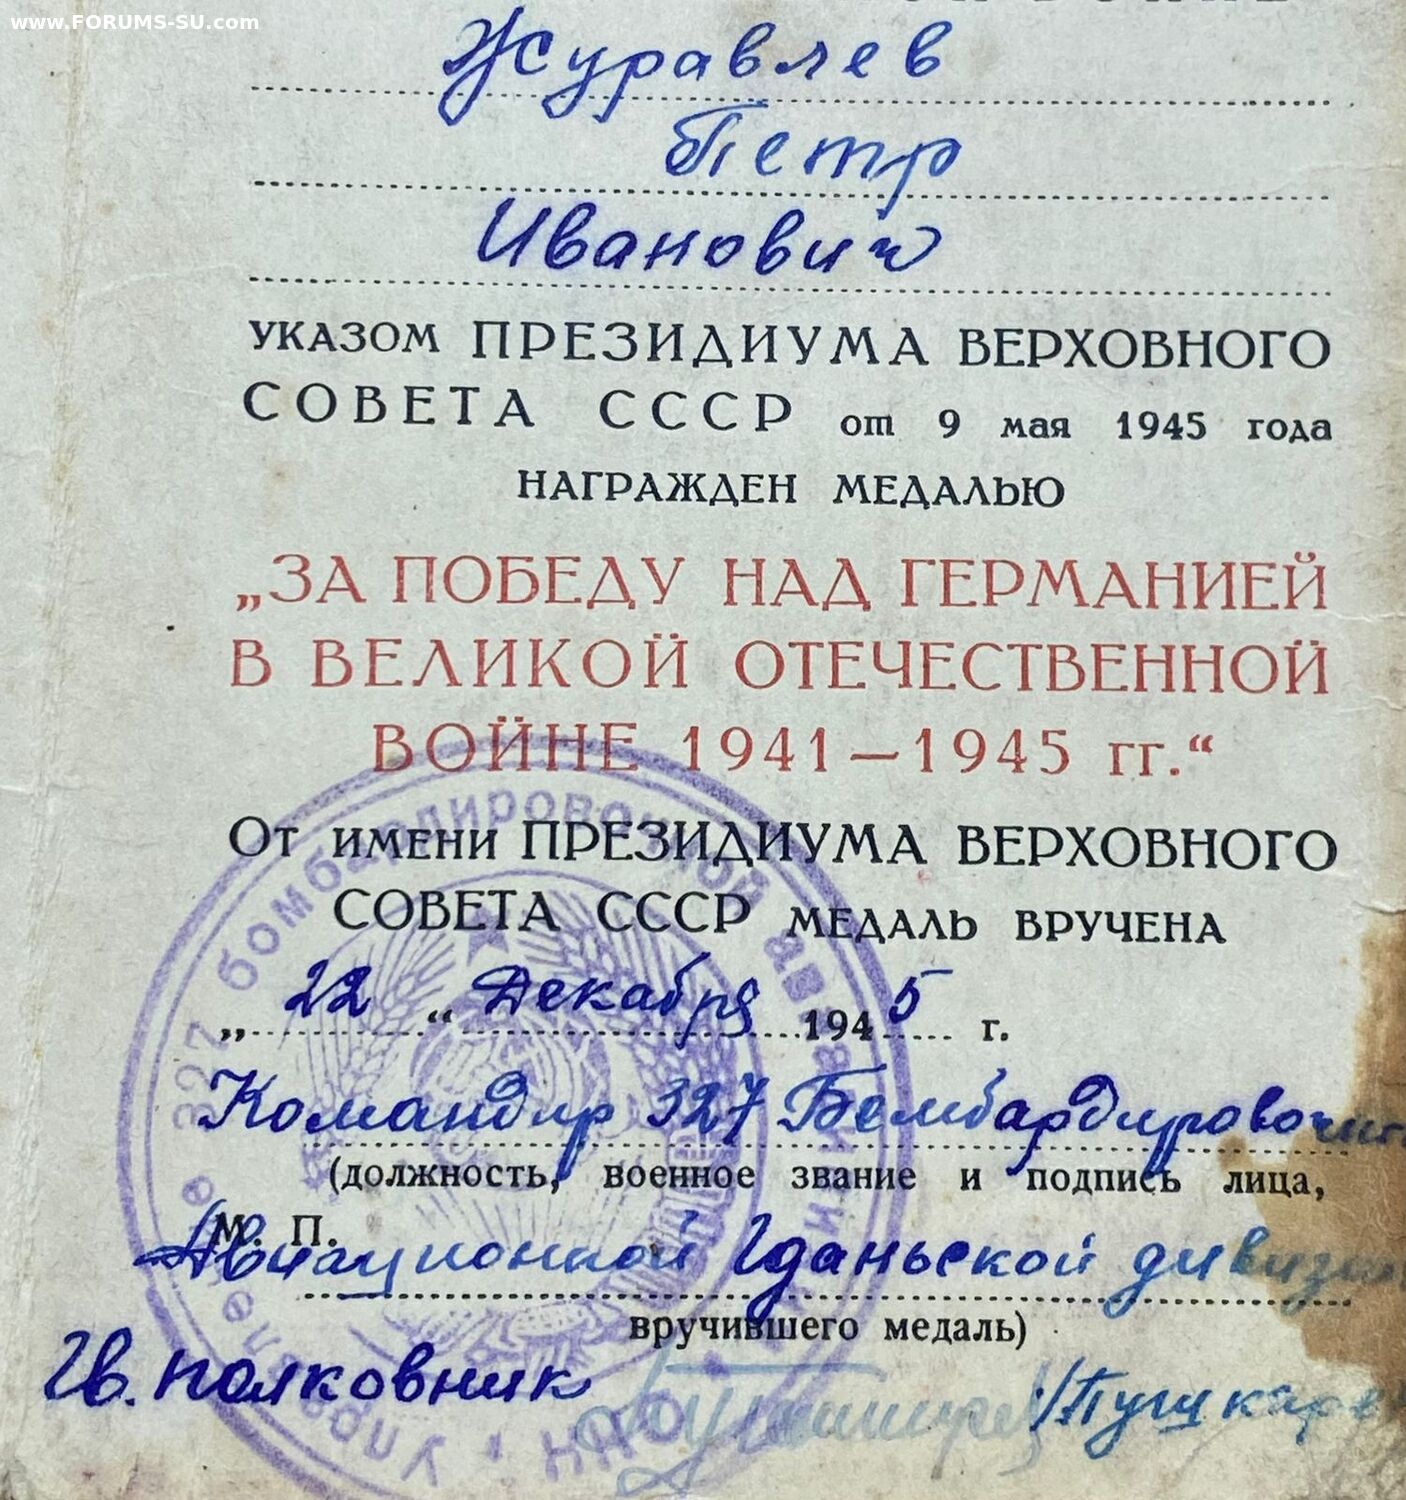 www.FORUMS-SU.com
Журавлев
Петр
Иванович
УКАЗОМ ПРЕЗИДИУМА ВЕРХОВНОГО
СОВЕТА СССР от 9 мая 1945 года
НАГРАЖДЕН МЕДАЛЬЮ
„ЗА ПОБЕДУ НАД ГЕРМАНИЕЙ
В ВЕЛИКОЙ ОТЕЧЕСТВЕННОЙ
ВОЙНЕ 1941—1945 гг.“
От ИМЕНИ ПРЕЗИДИУМА ВЕРХОВНОГО
СОВЕТА СССР МЕДАЛЬ ВРУЧЕНА
„22“ Декабря 1945 г.
Командир 327 Бомбардировочной
(должность, военное звание и подпись лица,
М. П.
Авиационной Гданьской дивизии
вручившего медаль)
Гв. полковник /Пушкарев
Управление 327 бомбардировочной авиационной